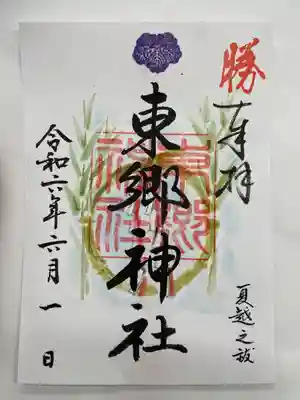 勝
奉拝
東郷神社
夏越之祓
令和六年六月一日
東郷神社